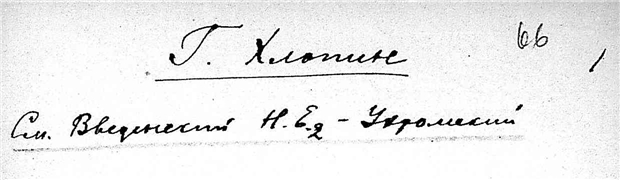 Г. Хлопин 66 /
См. Введенский Н.Е. – Ухтомский